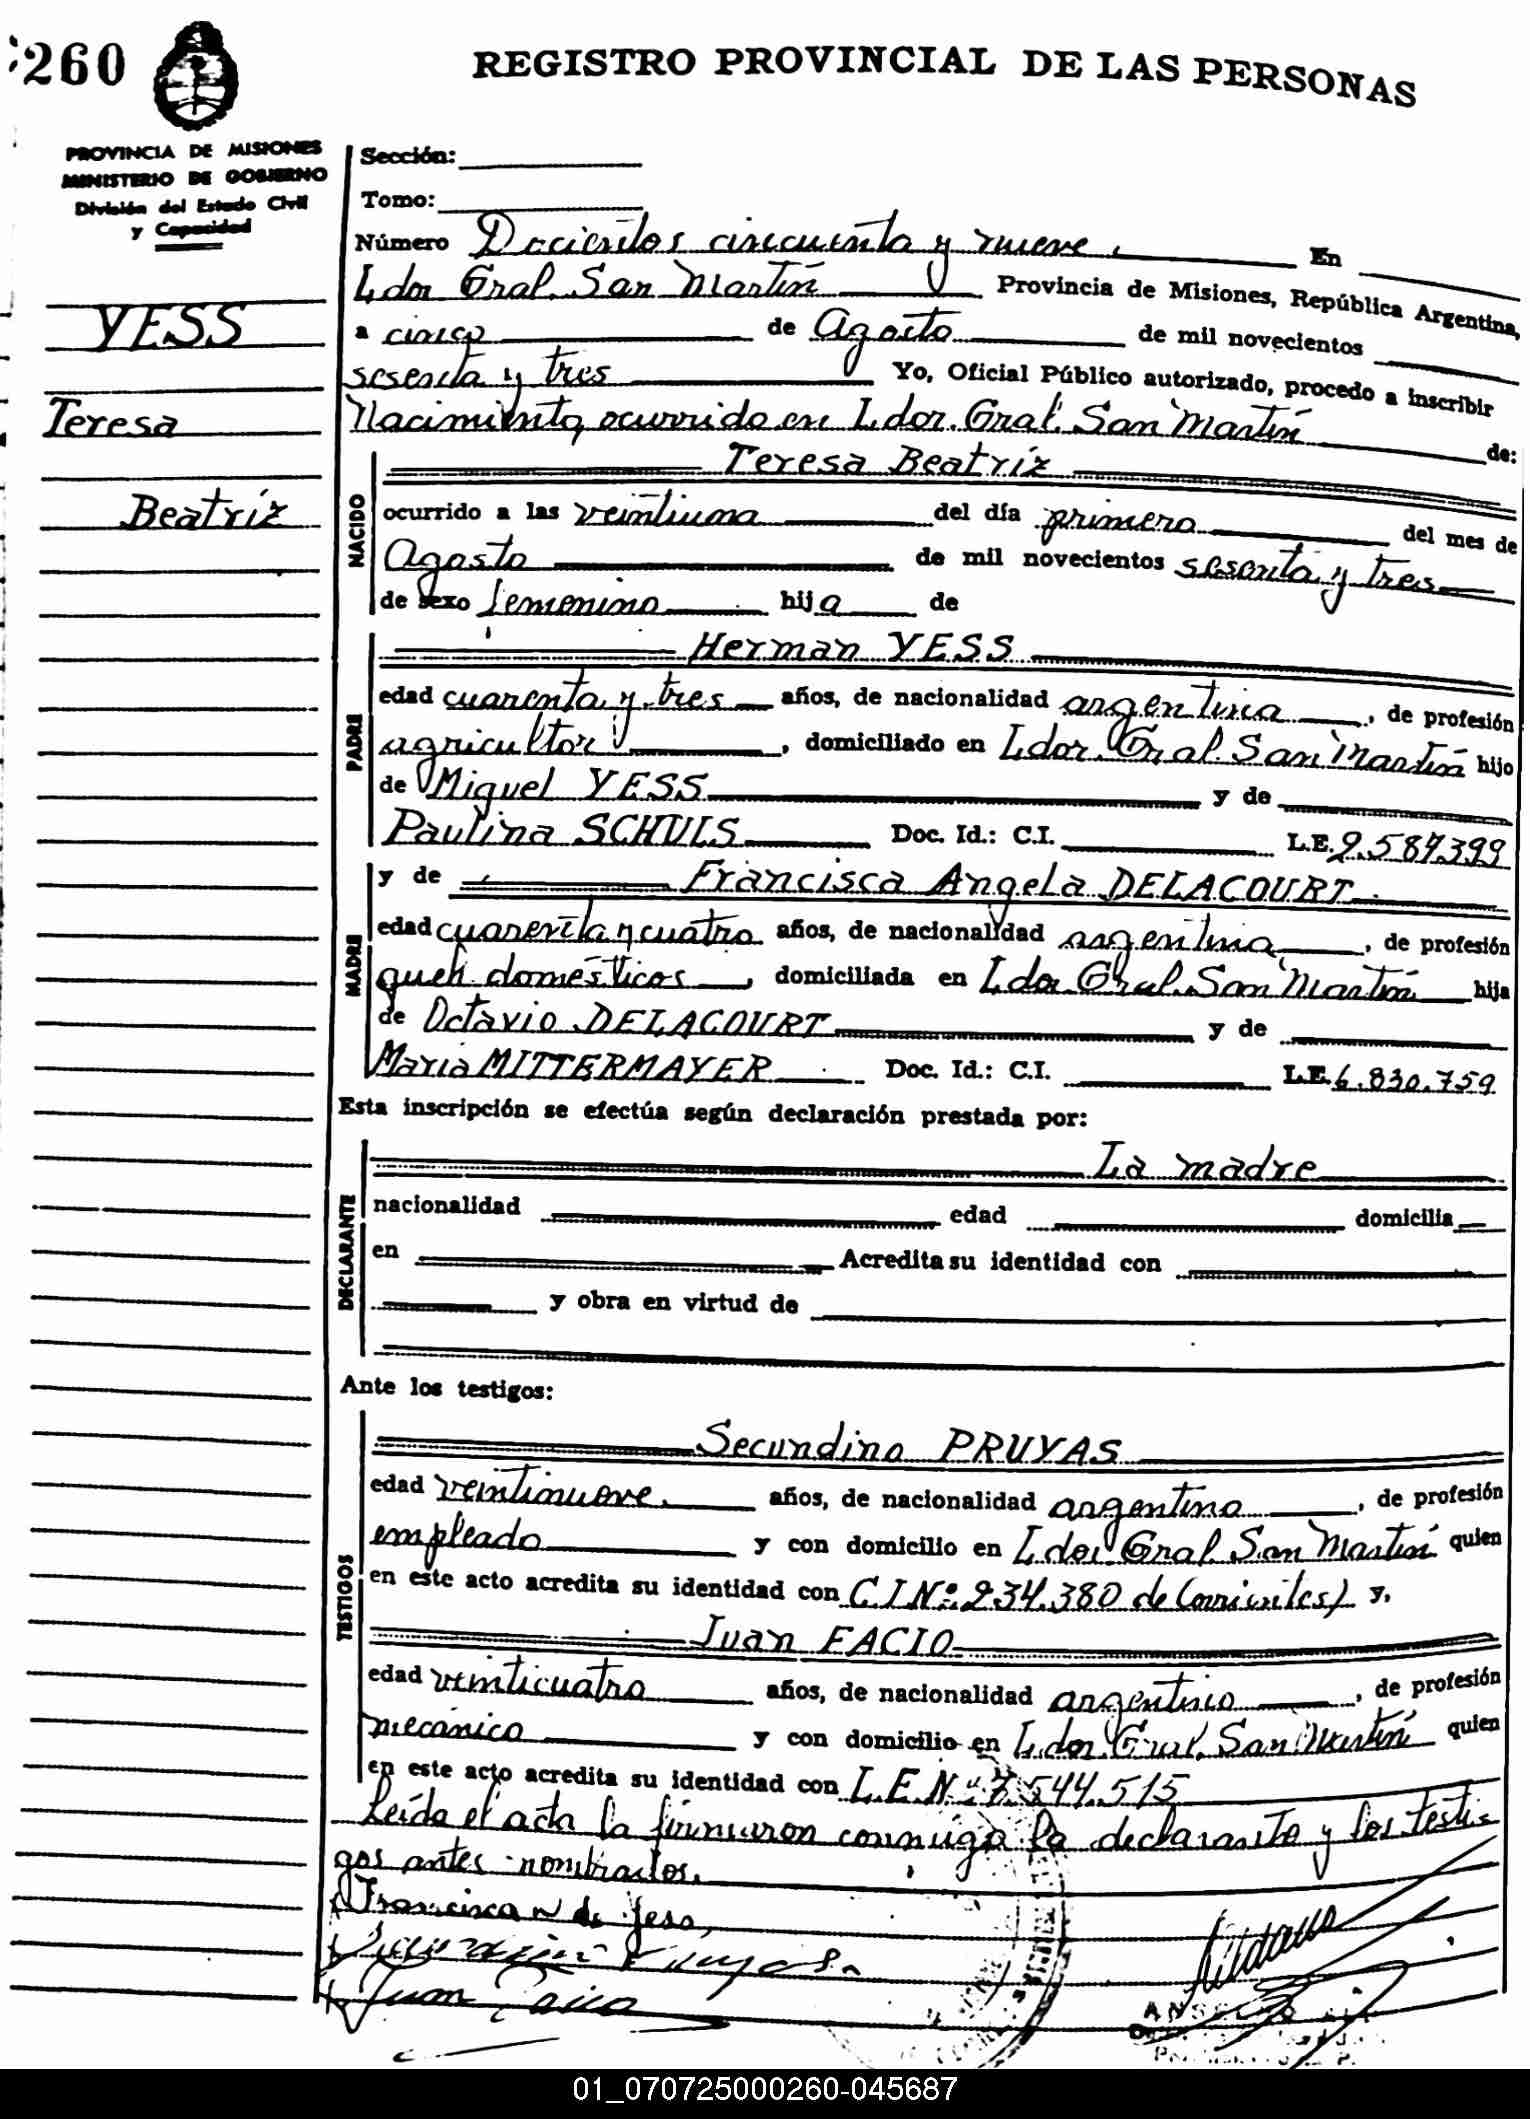 260
REGISTRO PROVINCIAL DE LAS PERSONAS
PROVINCIA DE MISIONES
MINISTERIO DE GOBIERNO
División del Estado Civil
y Capacidad
YESS
Teresa
Beatríz
Sección:
Tomo:
Número Docientos cincuenta y nueve. En
Ldor Gral. San Martín Provincia de Misiones, República Argentina,
a cinco de Agosto de mil novecientos
sesenta y tres Yo, Oficial Público autorizado, procedo a inscribir
Nacimiento, ocurrido en Ldor. Gral. San Martín de:
NACIDO
Teresa Beatríz
ocurrido a las veintiuna del día primero del mes de
Agosto de mil novecientos sesenta y tres
de sexo femenino hija de
PADRE
Herman YESS
edad cuarenta y tres años, de nacionalidad argentina, de profesión
agricultor, domiciliado en Ldor. Gral. San Martín hijo
de Miguel YESS y de
Paulina SCHULS Doc. Id.: C.I. L.E. 2.587.399
MADRE
y de Francisca Angela DELACOURT
edad cuarenta y cuatro años, de nacionalidad argentina, de profesión
queh. domésticos, domiciliada en Ldor Gral. San Martín hija
de Octavio DELACOURT y de
María MITTERMAYER Doc. Id.: C.I. L.E. 6.830.759
Esta inscripción se efectúa según declaración prestada por:
DECLARANTE
La madre
nacionalidad edad domicilia
en Acredita su identidad con
y obra en virtud de
Ante los testigos:
TESTIGOS
Secundino PRUYAS
edad veintinueve. años, de nacionalidad argentino, de profesión
empleado y con domicilio en Ldor Gral. San Martín quien
en este acto acredita su identidad con C I Nº 234.380 de Corrientes) y,
Juan FACIO
edad veinticuatro años, de nacionalidad argentino, de profesión
mecánico y con domicilio en Ldor. Gral. San Martín quien
en este acto acredita su identidad con L.E.Nº 7.544.515
Leída el acta la firmaron conmigo la declarante y los testi-
gos antes nombrados.
Francisca de Yess
Pruyas
Juan Facio
01_070725000260-045687